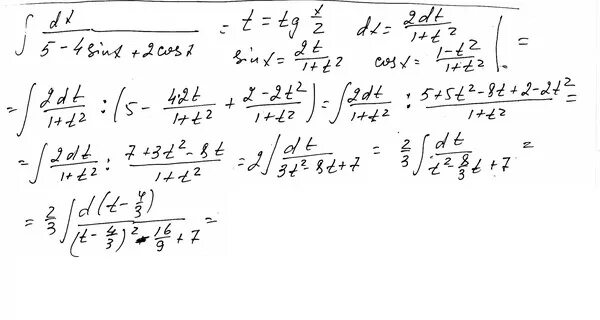 ∫ dx / (5 - 4 sin x + 2 cos x) = | t = tg x/2   dx = 2dt/(1+t²)   sin x = 2t/(1+t²)   cos x = (1-t²)/(1+t²) | =
= ∫ 2dt/(1+t²) : (5 - 4·2t/(1+t²) + (2-2t²)/(1+t²)) = ∫ 2dt/(1+t²) : (5+5t²-8t+2-2t²)/(1+t²) =
= ∫ 2dt/(1+t²) : (7+3t²-8t)/(1+t²) = 2∫ dt/(3t²-8t+7) = 2/3 ∫ dt/(t²-8/3 t+7) =
= 2/3 ∫ d(t-4/3)/((t-4/3)²-16/9+7) =